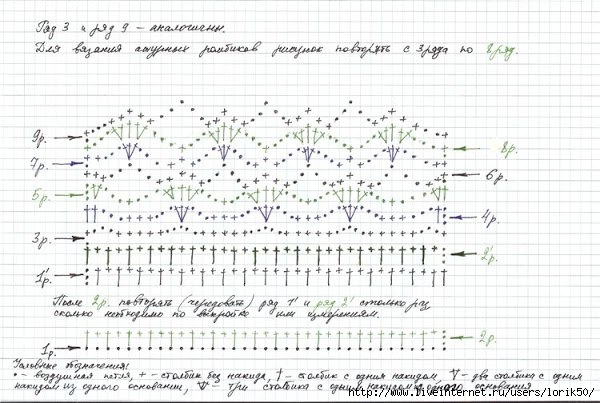 Ряд 3 и ряд 9 - аналогичны.
Для вязания ажурных ромбиков рисунок повторять с 3 ряда по 8 ряд.
9р.
8р.
7р.
6р.
5р.
4р.
3р.
2'р.
1'р.
После 2р. повторять (чередовать) ряд 1' и ряд 2' столько раз
сколько необходимо по выкройке или измерениям.
2р.
1р.
Условные обозначения:
• - воздушная петля, + - столбик без накида, † - столбик с одним накидом, V - два столбика с одним
накидом из одного основания, V - три столбика с одним накидом из одного основания
http://www.liveinternet.ru/users/lorik50/